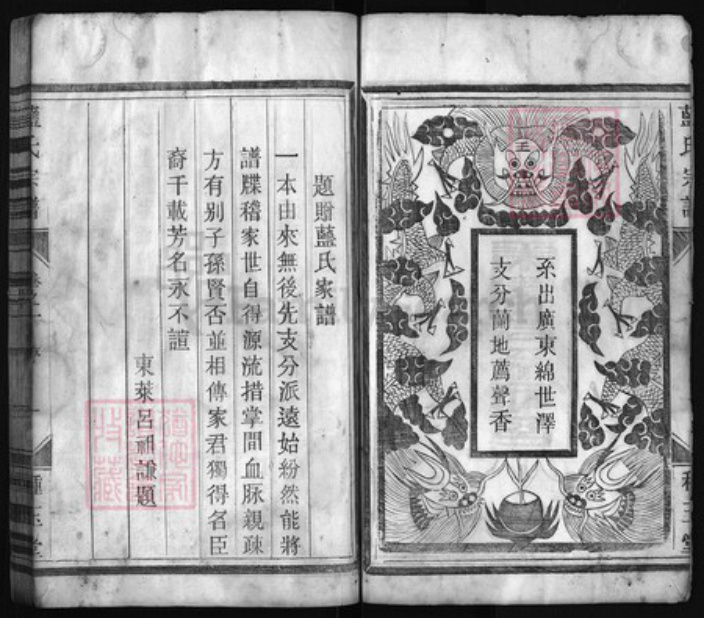 系出廣東綿世澤
支分蘭地薦聲香
題贈藍氏家譜
一本由來無後先支分派遠始紛然能將
譜牒稽家世自得源流措掌間血脉親疎
方有别子孫賢否並相傳家君獨得名臣
裔千載芳名永不諠
東萊呂祖謙題
藍氏宗譜
種玉堂